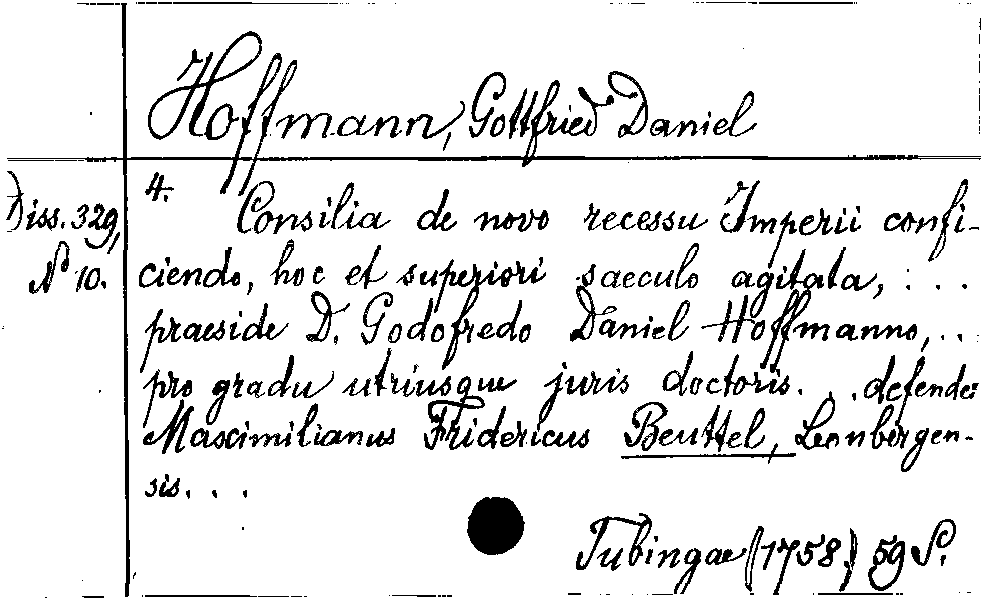 Hoffmann, Gottfried Daniel
Diss. 329,
No 10.
4.
Consilia de novo recessu Imperii confi-
ciendo, hoc et superiori saeculo agitata, : . . .
praeside D. Godofredo Daniel Hoffmanno, . .
pro gradu utriusque juris doctoris. . . defendet
Maximilianus Fridericus Beuttel, Leonbergen-
sis. . .
Tubingae (1758.) 59 S.